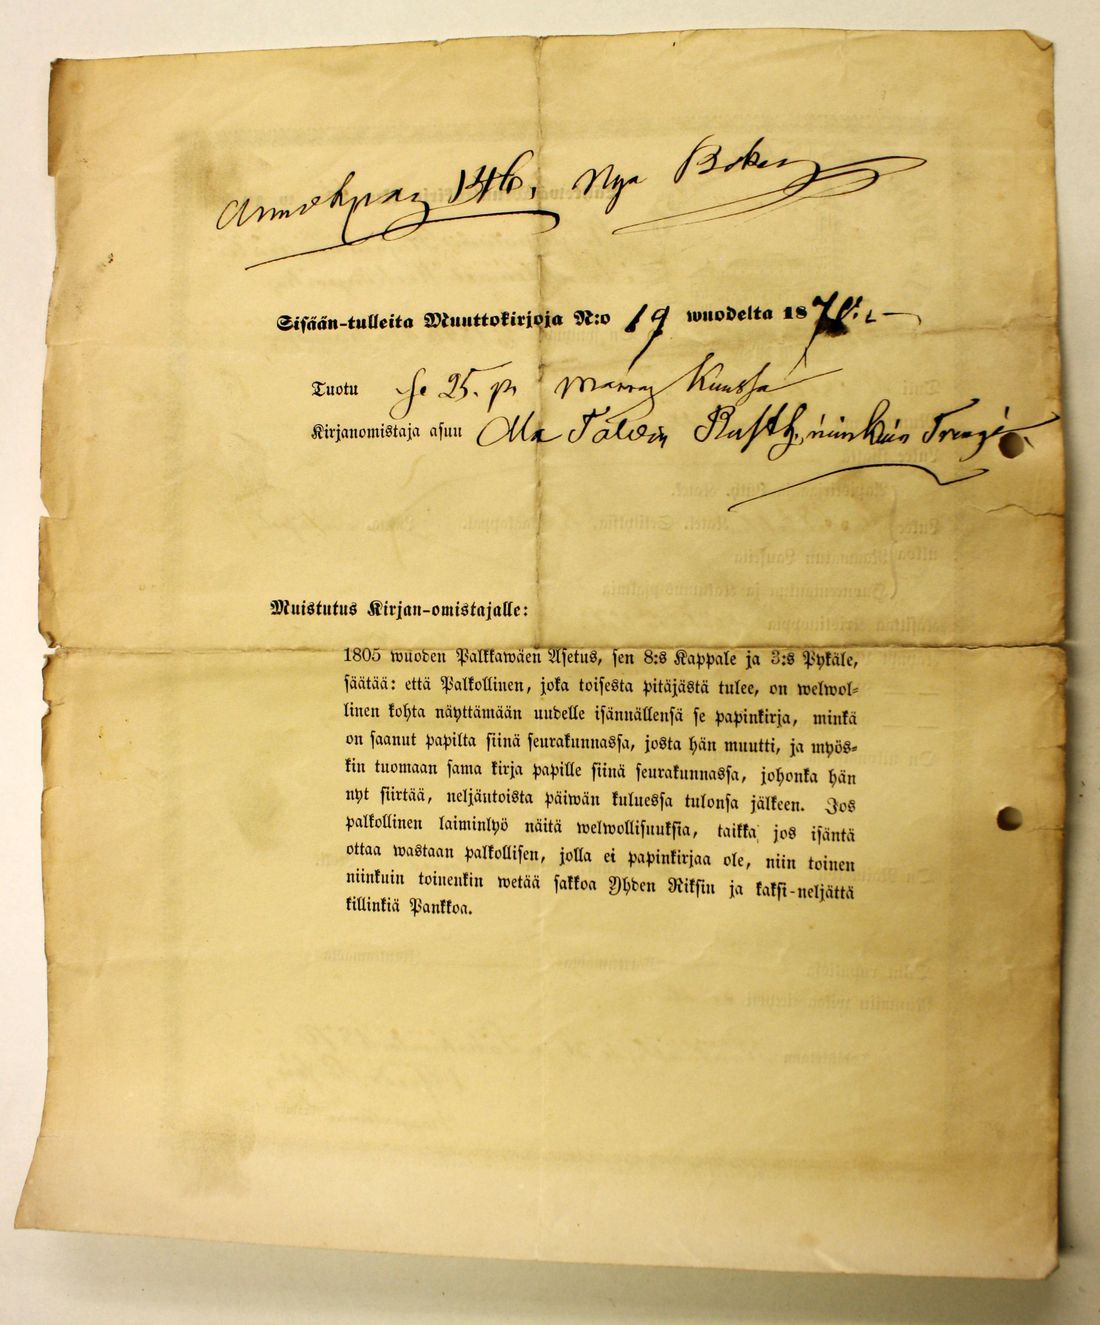 146. Nya Boken
Sisään-tulleita Muuttokirjoja N:o 19 wuodelta 187
Tuotu se 25. p. Marras Kuussa
Kirjanomistaja asuu
Muistutus Kirjan-omistajalle:
1805 wuoden Palkkawäen Asetus, sen 8:s Kappale ja 3:s Pykäle,
säätää: että Palkollinen, joka toisesta pitäjästä tulee, on welwol-
linen kohta näyttämään uudelle isännällensä se papinkirja, minkä
on saanut papilta siinä seurakunnassa, josta hän muutti, ja myös-
kin tuomaan sama kirja papille siinä seurakunnassa, johonka hän
nyt siirtää, neljäntoista päiwän kuluessa tulonsa jälkeen. Jos
palkollinen laiminlyö näitä welwollisuuksia, taikka jos isäntä
ottaa wastaan palkollisen, jolla ei papinkirjaa ole, niin toinen
niinkuin toinenkin wetää sakkoa Yhden Riksin ja kaksi-neljättä
killinkiä Pankkoa.